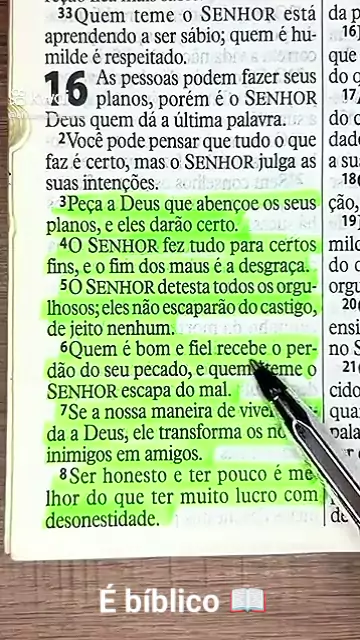 33Quem teme o SENHOR está
aprendendo a ser sábio; quem é hu-
milde é respeitado.
16 As pessoas podem fazer seus
planos, porém é o SENHOR
Deus quem dá a última palavra.
2Você pode pensar que tudo o que
faz é certo, mas o SENHOR julga as
suas intenções.
3Peça a Deus que abençoe os seus
planos, e eles darão certo.
4O SENHOR fez tudo para certos
fins, e o fim dos maus é a desgraça.
5O SENHOR detesta todos os orgu-
lhosos; eles não escaparão do castigo,
de jeito nenhum.
6Quem é bom e fiel recebe o per-
dão do seu pecado, e quem teme o
SENHOR escapa do mal.
7Se a nossa maneira de viver
da a Deus, ele transforma os
inimigos em amigos.
8Ser honesto e ter pouco é me
lhor do que ter muito lucro com
desonestidade.
da p
16
que
do q
17
do c
da
a su
18
ção,
19
milc
do c
orgu
20
ensi
no S
21
cido
qua
pala
É bíblico 📖